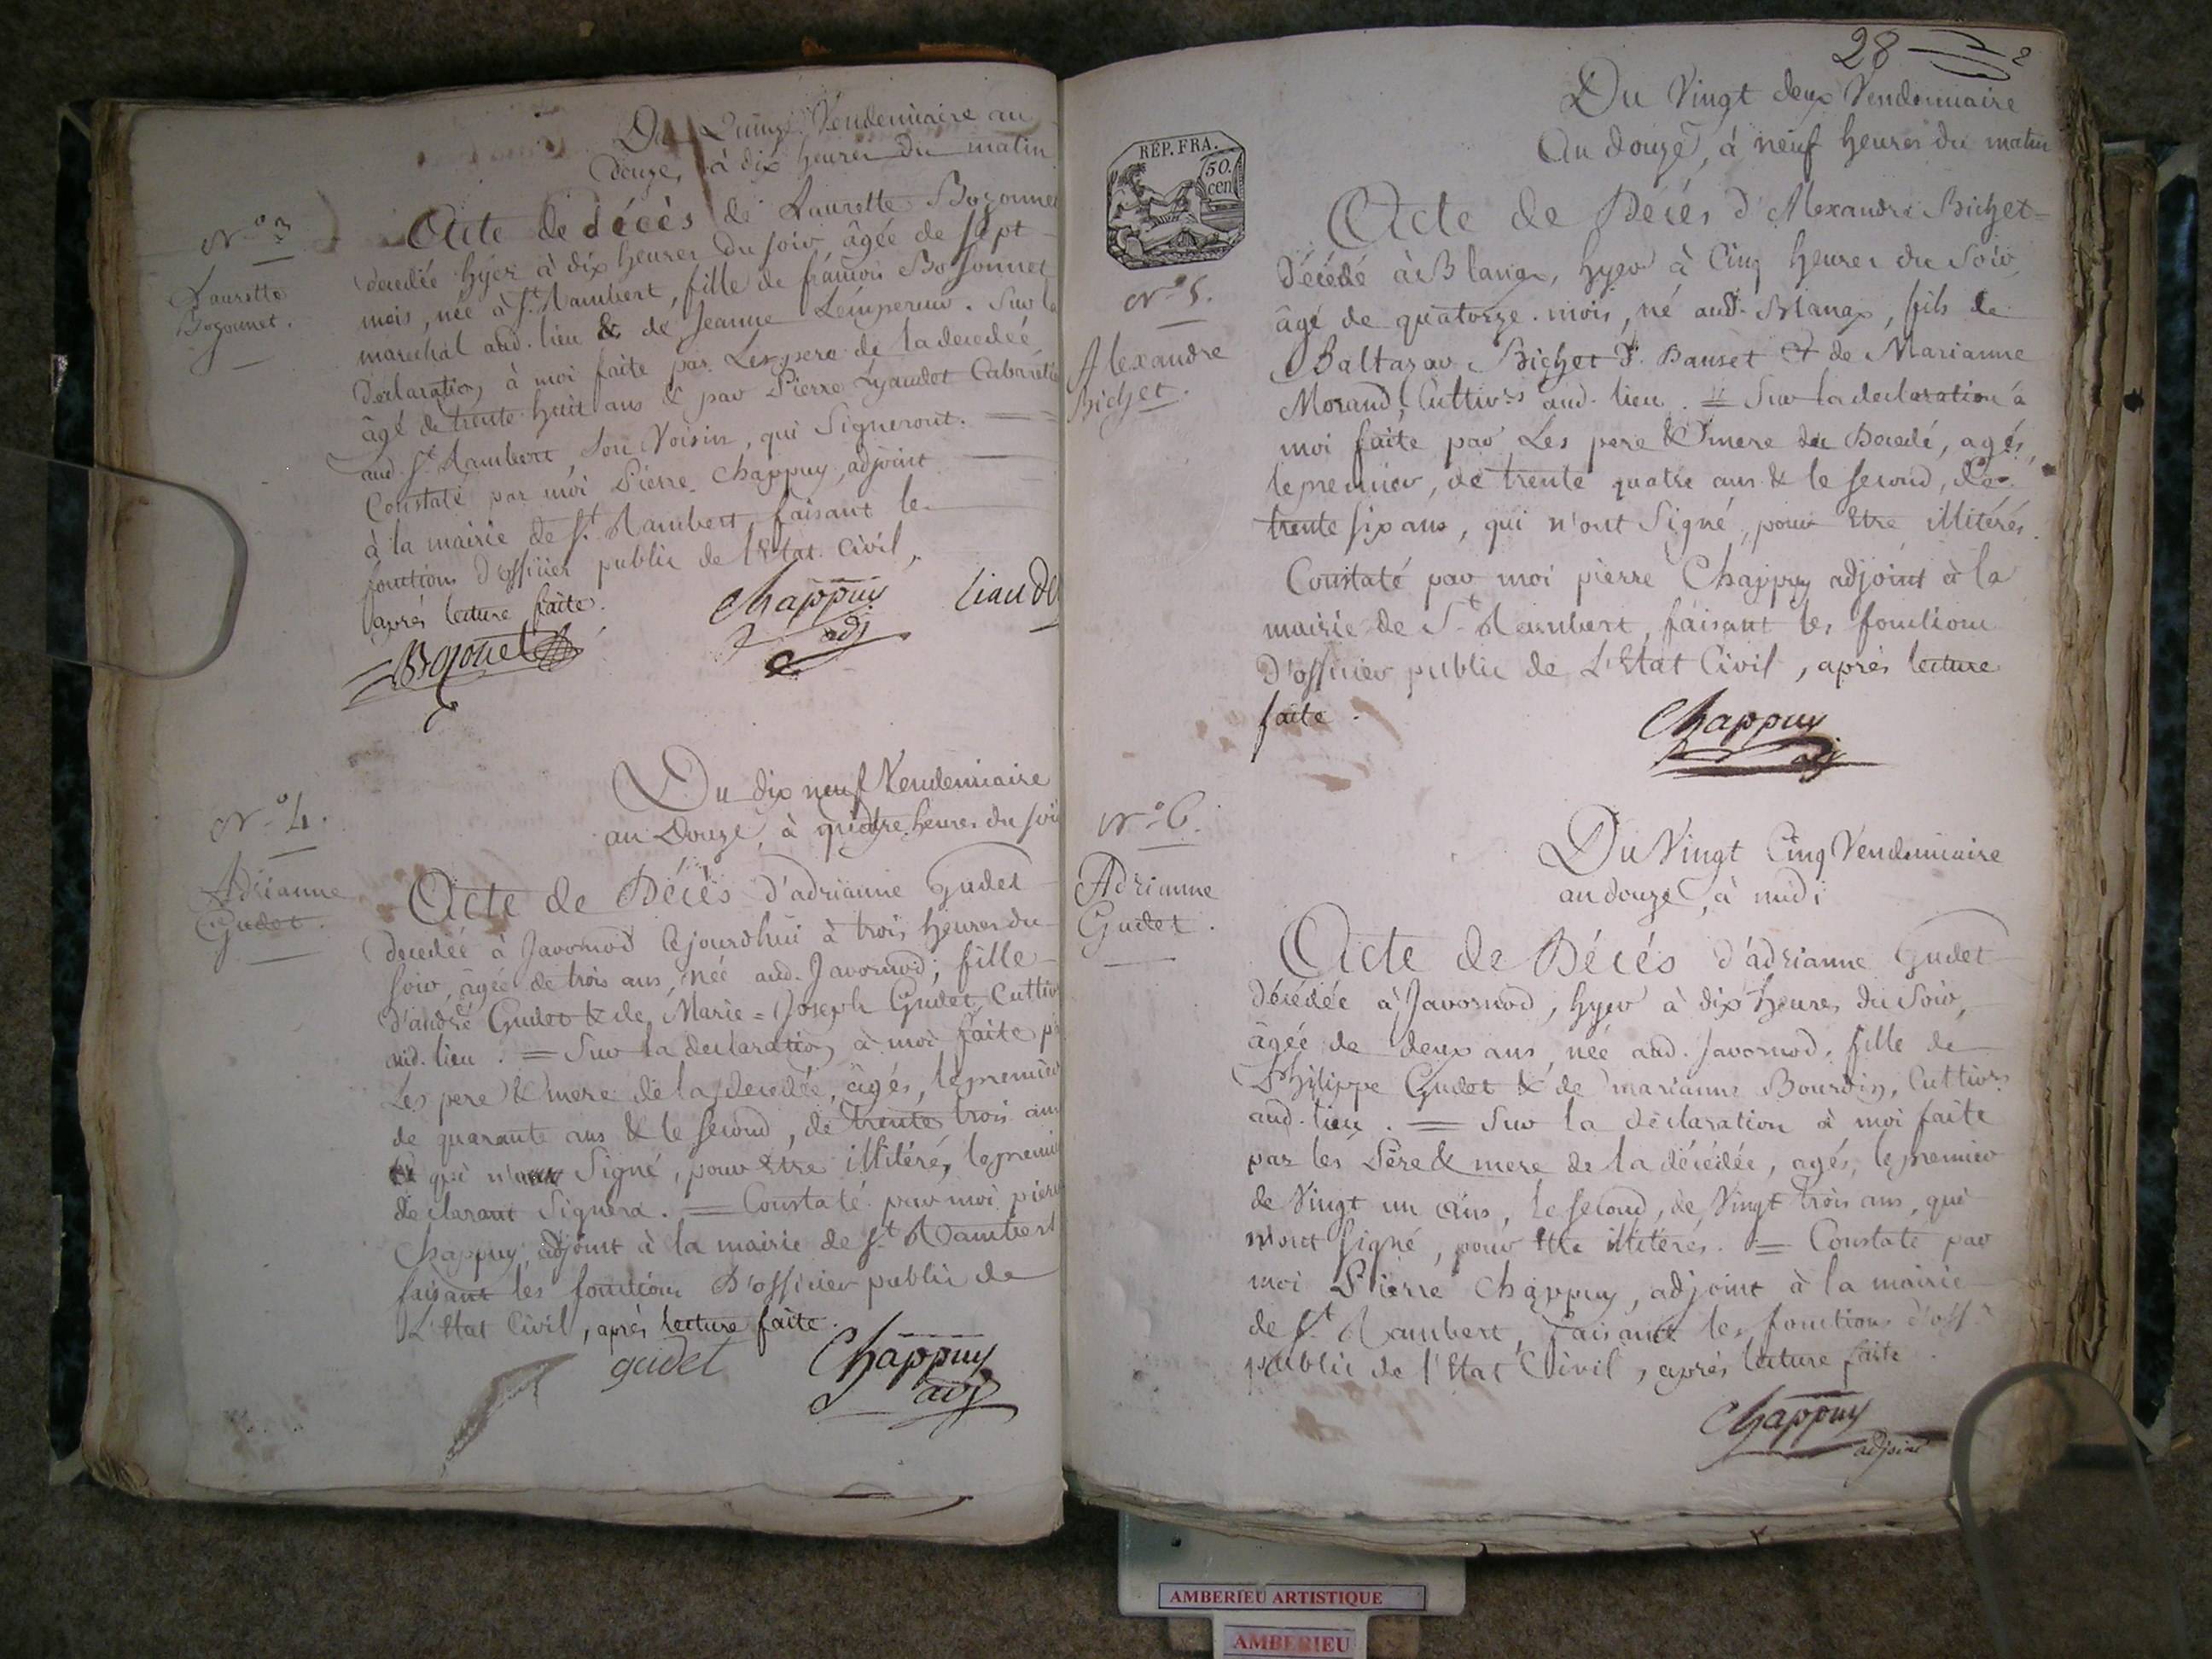 Du Quinze Vendemiaire an
douze, à dix heures du matin
N.º 3
Laurette
Bozonnet.
Acte de décès de Laurette Bozonnet
decedée hyer à dix heures du soir, âgée de sept
mois, née à St. Rambert, fille de francois Bosonnet
marechal aud. lieu & de Jeanne Lempereur. Sur la
declaration à moi faite par Les pere de la decedée
âgé de trente huit ans & par Pierre Lyaudet Cabaretie
aud. St. Rambert, Son Voisin, qui Signeront.
Constaté par moi Pierre Chappuy, adjoint
à la mairie de St. Rambert, faisant les
fonctions d'officier public de l'Etat Civil,
après lecture faite.
Bozonet
Chappuy
adj
Liaude
Du dix neuf Vendemiaire
an Douze, à quatre heures du soir
N.º 4.
Adrianne
Gudet.
Acte de Décès d'adrianne Gudet
decedée à Javornod Cejourdhui à trois heures du
soir, âgée de trois ans, née aud. Javornod, fille
d'andré Gudet & de Marie = Joseph Gudet, Cultiv
aud. lieu. = Sur la declaration à moi faite p
Les pere & mere de la decedée, âgés, le premier
de quarante ans & le second, de trente trois ans
qui n'a Signé, pour Etre illitéré, le premier
declarant Signera. = Constaté par moi pierre
Chappuy, adjoint à la mairie de St. Rambert
faisant les fonctions D'officier public de
L'Etat Civil, après lecture faite.
gudet
Chappuy
adj
28
2
Du Vingt deux Vendemiaire
An douze, à neuf heures du matin
REP. FRA.
50.
cen
N.º 5.
Alexandre
Bichet.
Acte de Décès d'Alexandre Bichet
Décédé à Blanax, hyer à Cinq heures du Soir,
âgé de quatorze mois, né aud. Blanax, fils de
Baltazar Bichet d. Banset & de Marianne
Morand, Cultivrs aud. lieu. = Sur la declaration à
moi faite par Les pere & mere du Decedé, agés,
le premier, de trente quatre ans & le second, de
trente six ans, qui n'ont Signé, pour Etre illitérés.
Constaté par moi pierre Chappuy adjoint à la
mairie de St. Rambert, faisant les fonctions
D'officier public de L'Etat Civil, après lecture
faite.
Chappuy
adj
N.º 6.
Adrianne
Gudet.
Du Vingt Cinq Vendemiaire
an douze, à midi
Acte de Décès d'adrianne Gudet
décédée à Javornod, hyer à dix heures du Soir,
âgée de deux ans, née aud. Javornod, fille de
Philippe Gudet & de marianne Bourdin, Cultivrs
aud. lieu. = Sur la déclaration à moi faite
par les Père & mere de la décedée, agés, le premier
de Vingt un ans, le second, de Vingt trois ans, qui
n'ont signé, pour Etre illitérés. = Constaté par
moi Pierre Chappuy, adjoint à la mairie
de St. Rambert, faisant les fonctions d'offr
public de l'Etat Civil, après lecture faite
Chappuy
adjoint
AMBERIEU ARTISTIQUE
AMBERIEU